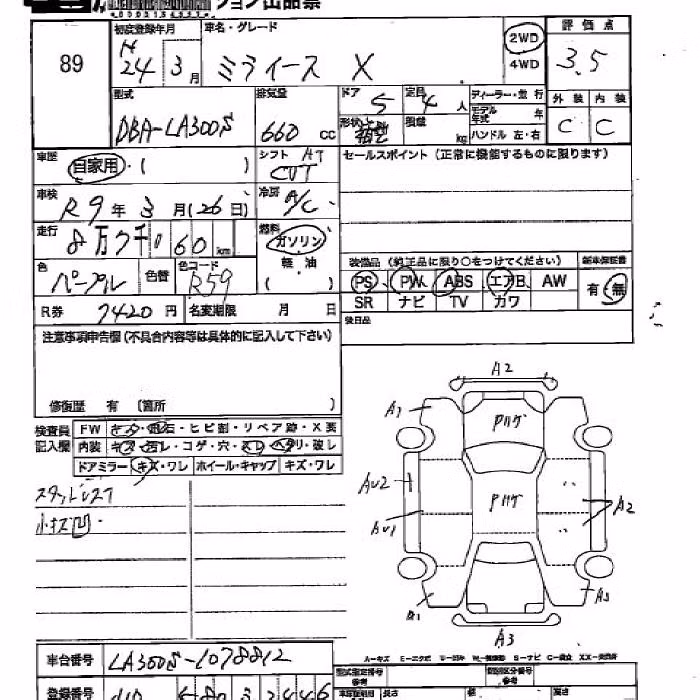 ション出品票
89
初度登録年月 車名・グレード 2WD 4WD 評価点
H 24 3月 ミライース X 3.5
型式 排気量 ドア 5 定員 4人 ディーラー・並行
モデル年式 年 外装 内装
DBA-LA300S 660 cc 形状 箱型 積載 kg ハンドル 左・右 C C
車歴 自家用・( ) シフト AT CVT
セールスポイント(正常に機能するものに限ります)
車検 R9年 3月(26日) 冷房 A/C
走行 8万 060 km 燃料 ガソリン 軽・油 ( )
装備品(純正品に限り○をつけてください) 新車保証書
色 パープル 色替 色コード R59
PS PW ABS エアB AW 有・無
SR ナビ TV カワ
R券 7420円 名変期限 月 日
後日品
注意事項申告欄(不具合内容等は具体的に記入して下さい)
修復歴 有 [箇所 ]
検査員記入欄 FW キズ・飛石・ヒビ割・リペア跡・X要
内装 キズ・汚レ・コゲ・穴・スレ・ヘタリ・破レ
ドアミラー キズ・ワレ ホイール・キャップ キズ・ワレ
スタッドレス
小キズ凹
A2
A1
Pハゲ
AU2
Pハゲ
A2
AU1
A3
A-キズ E-エクボ
車台番号 LA300S-1078812
型式指定番号 類別区分番号
登録番号
長さ 幅 高さ